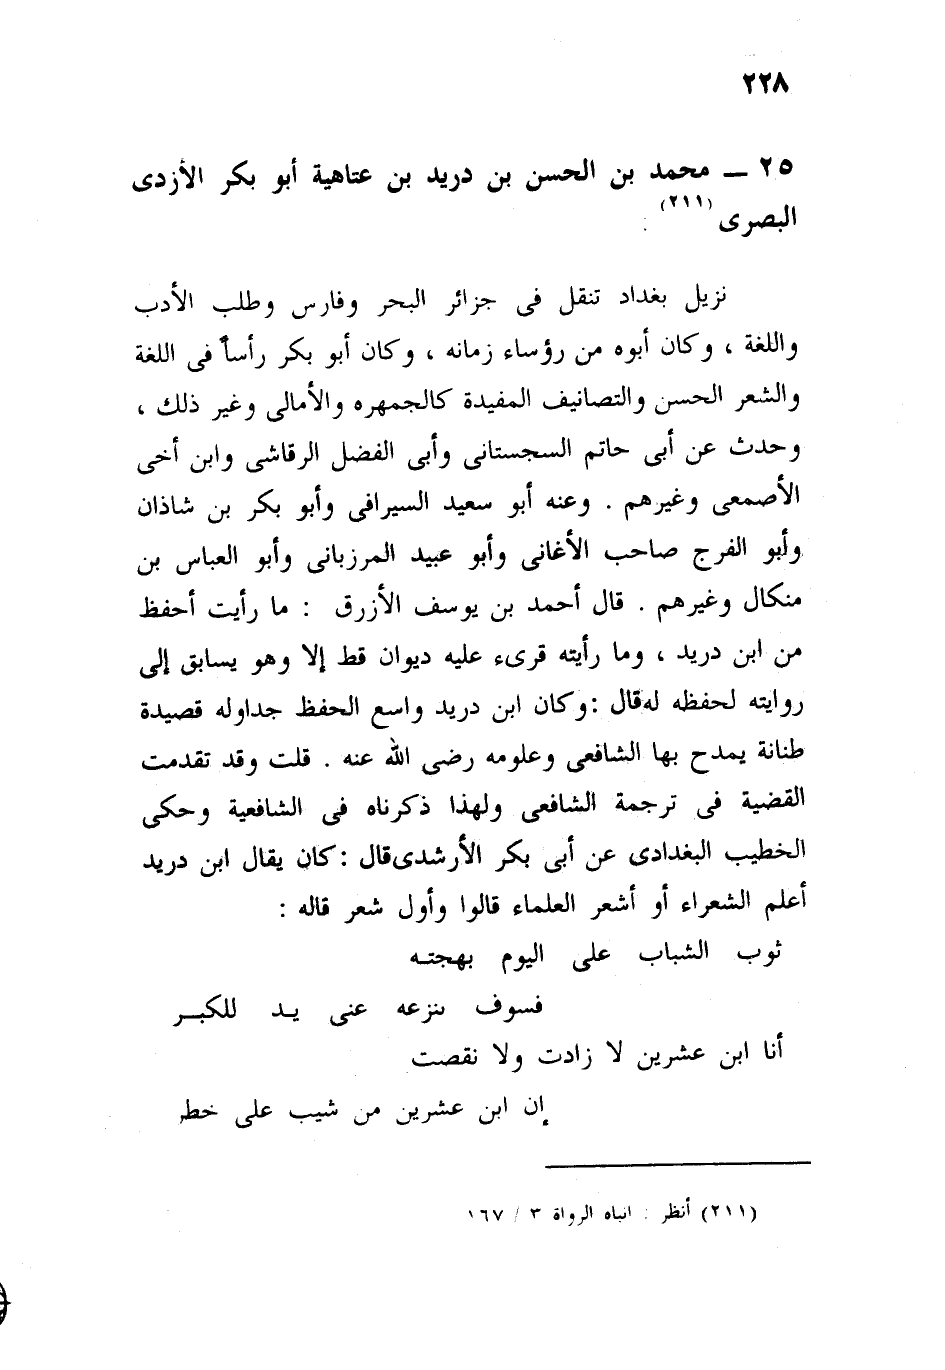 ٢٢٨
٢٥ ــ محمد بن الحسن بن دريد بن عتاهية أبو بكر الأزدى
البصرى (٢١١) .
نزيل بغداد تنقل فى جزائر البحر وفارس وطلب الأدب
واللغة ، وكان أبوه من رؤساء زمانه ، وكان أبو بكر رأساً فى اللغة
والشعر الحسن والتصانيف المفيدة كالجمهره والأمالى وغير ذلك ،
وحدث عن أبى حاتم السجستانى وأبى الفضل الرقاشى وابن أخى
الأصمعى وغيرهم . وعنه أبو سعيد السيرافى وأبو بكر بن شاذان
وأبو الفرج صاحب الأغانى وأبو عبيد المرزبانى وأبو العباس بن
منكال وغيرهم . قال أحمد بن يوسف الأزرق : ما رأيت أحفظ
من ابن دريد ، وما رأيته قرىء عليه ديوان قط إلا وهو يسابق إلى
روايته لحفظه له قال : وكان ابن دريد واسع الحفظ جداوله قصيدة
طنانة يمدح بها الشافعى وعلومه رضى الله عنه . قلت وقد تقدمت
القضية فى ترجمة الشافعى ولهذا ذكرناه فى الشافعية وحكى
الخطيب البغدادى عن أبى بكر الأرشدى قال : كان يقال ابن دريد
أعلم الشعراء أو أشعر العلماء قالوا وأول شعر قاله :
ثوب الشباب على اليوم بهجتـه
فسوف ينزعه عنى يـد للكبـر
أنا ابن عشرين لا زادت ولا نقصت
إن ابن عشرين من شيب على خطر
(٢١١) أنظر : انباه الرواة ٣ / ١٦٧